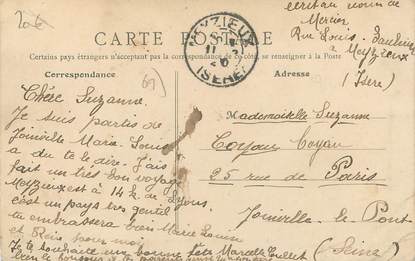 écrit au nom de
Mercier
Rue Louis
à Meyzieux
(Isère)
CARTE POSTALE
Certains pays étrangers n'acceptant pas la correspondance de ce côté, se renseigner à la Poste
MEYZIEUX
ISERE
Correspondance
Adresse
Chère Suzanne
Je suis partie de
Joinville Marie Louise
a du te le dire J'ais
fait un très bon voyage
Meyzieux est à 14 k de Lyon
c'est un pays très gentil
tu embrassera bien Marie Louise
et pour moi
Je te souhaite une bonne fête Marcelle
Mademoiselle Suzanne
Coyau Coyau
25 rue de Paris
Joinville-le-Pont
(Seine)